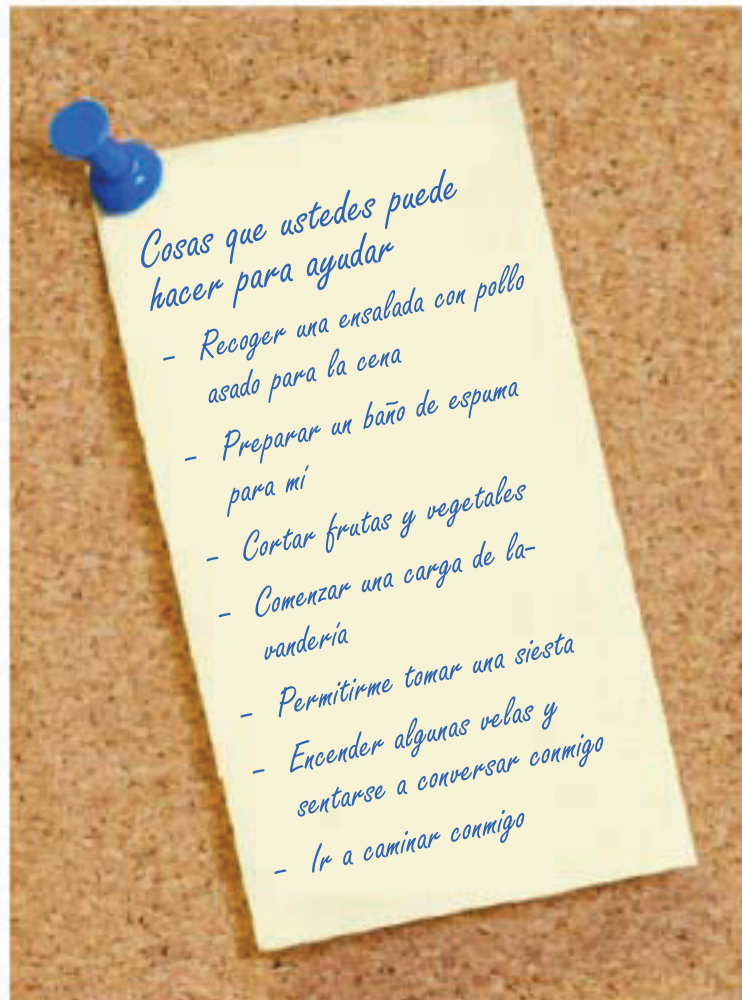 Cosas que ustedes puede
hacer para ayudar
- Recoger una ensalada con pollo
asado para la cena
- Preparar un baño de espuma
para mí
- Cortar frutas y vegetales
- Comenzar una carga de la-
vandería
- Permitirme tomar una siesta
- Encender algunas velas y
sentarse a conversar conmigo
- Ir a caminar conmigo